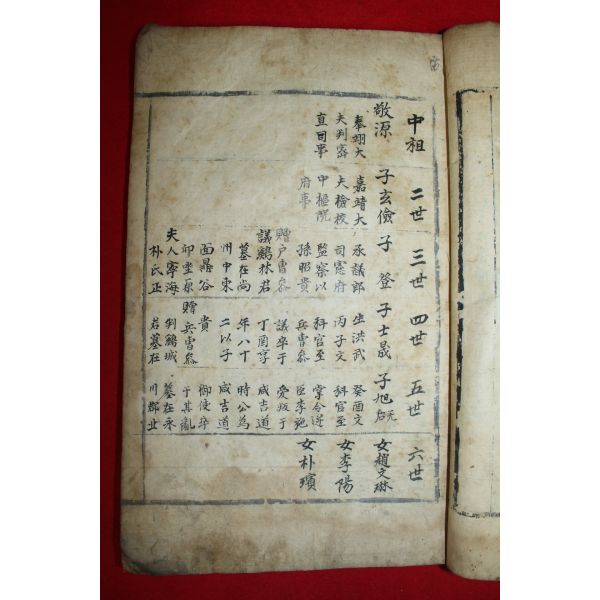 中祖 二世 三世 四世 五世 六世
敬源 子玄儉 子登 子士晟 子旭 无后 女趙文琳
奉翊大 嘉靖大 承議郎 生洪武 癸酉文
夫判密 夫檢校 司憲府 丙子文 科官至 女李陽
直司事 中樞院 監察以 科官至 掌令遭
府事 孫昭貴 兵曹參 臣李施 女朴璸
贈戶曹參 議卒于 愛叛于
議鷄林君 享 咸吉道
墓在尚 年八十 時公為
州中東 二以子 咸吉道
面鼎谷 貴 御使卒
卯坐原 贈兵曹參 于其亂
夫人寧海 判鷄城 墓在永
朴氏正 君墓在 川郡北